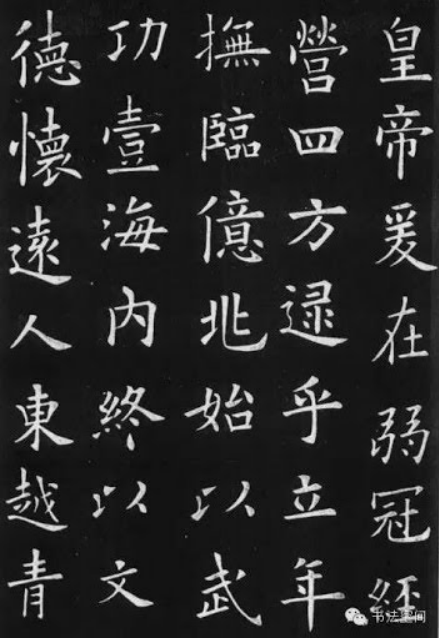 皇帝爰在弱冠經
營四方逮乎立年
撫臨億兆始以武
功壹海內終以文
德懷遠人東越青
书法空间